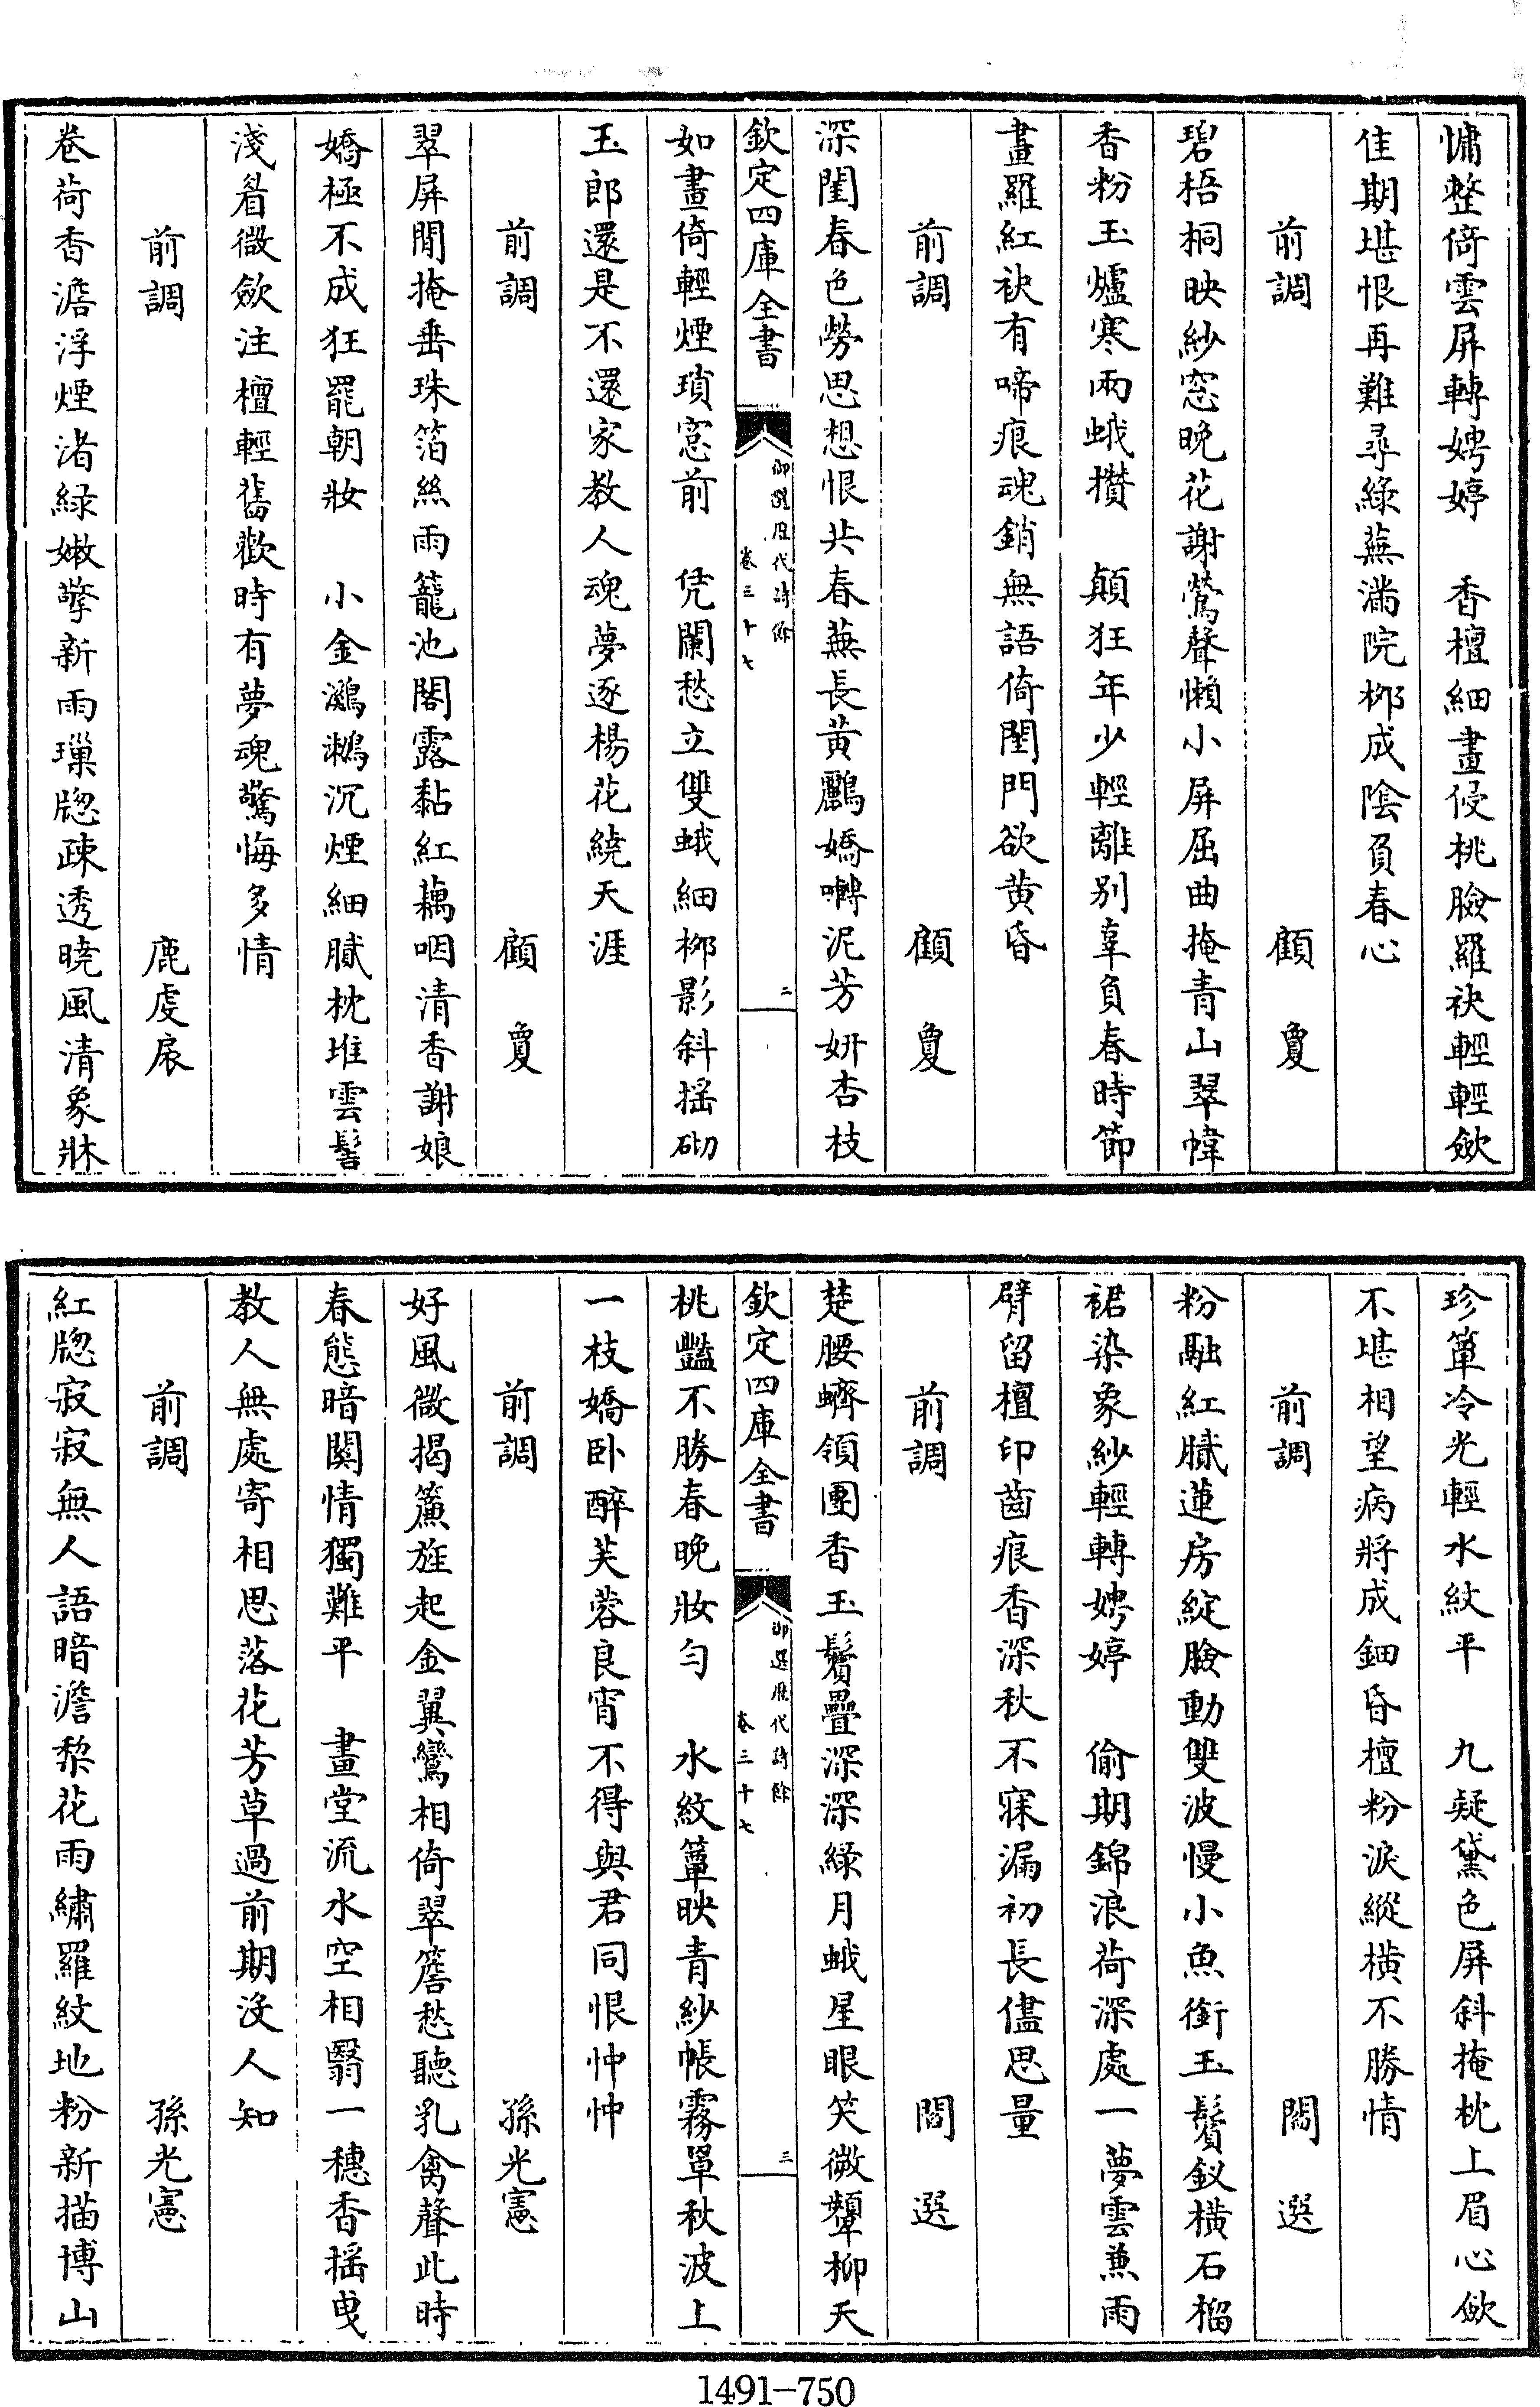 慵整倚雲屏轉娉婷　香檀細畫侵桃臉羅袂輕輕斂
佳期堪恨再難尋綠蕪滿院桞成陰負春心
前調　顧夐
碧梧桐映紗窓晚花謝鶯聲懶小屏屈曲掩青山翠幃
香粉玉爐寒兩蛾攢　顛狂年少輕離别辜負春時節
畫羅紅袂有啼痕魂銷無語倚閨門欲黄昏
前調　顧夐
深閨春色勞思想恨共春蕪長黄鸝嬌囀泥芳妍杏枝
如畫倚輕煙瑣窓前　凭闌愁立雙蛾細桞影斜摇砌
玉郎還是不還家教人魂夢逐楊花繞天涯
前調　顧夐
翠屏閒掩垂珠箔絲雨籠池閣露黏紅藕咽清香謝娘
嬌極不成狂罷朝妝　小金鸂鶒沉煙細膩枕堆雲髻
淺眉微斂注檀輕舊歡時有夢魂驚悔多情
前調　鹿虔扆
卷荷香澹浮煙渚綠嫩擎新雨璅牕疎透曉風清象牀
欽定四庫全書
御選歷代詩餘
卷三十七
二
珍簟冷光輕水紋平　九疑黛色屏斜掩枕上眉心斂
不堪相望病將成鈿昏檀粉淚縱横不勝情
前調　閻選
粉融紅膩蓮房綻臉動雙波慢小魚銜玉鬢釵横石榴
裙染象紗輕轉娉婷　偷期錦浪荷深處一夢雲兼雨
臂留檀印齒痕香深秋不寐漏初長儘思量
前調　閻選
楚腰蠐領團香玉鬢疊深深綠月蛾星眼笑微顰柳夭
桃豔不勝春晚妝匀　水紋簟映青紗帳霧罩秋波上
一枝嬌卧醉芙蓉良宵不得與君同恨忡忡
前調　孫光憲
好風微揭簾旌起金翼鸞相倚翠簷愁聽乳禽聲此時
春態暗關情獨難平　畫堂流水空相翳一穗香摇曳
教人無處寄相思落花芳草過前期没人知
前調　孫光憲
紅牕寂寂無人語暗澹梨花雨繡羅紋地粉新描博山
欽定四庫全書
御選歷代詩餘
卷三十七
三
1491-750